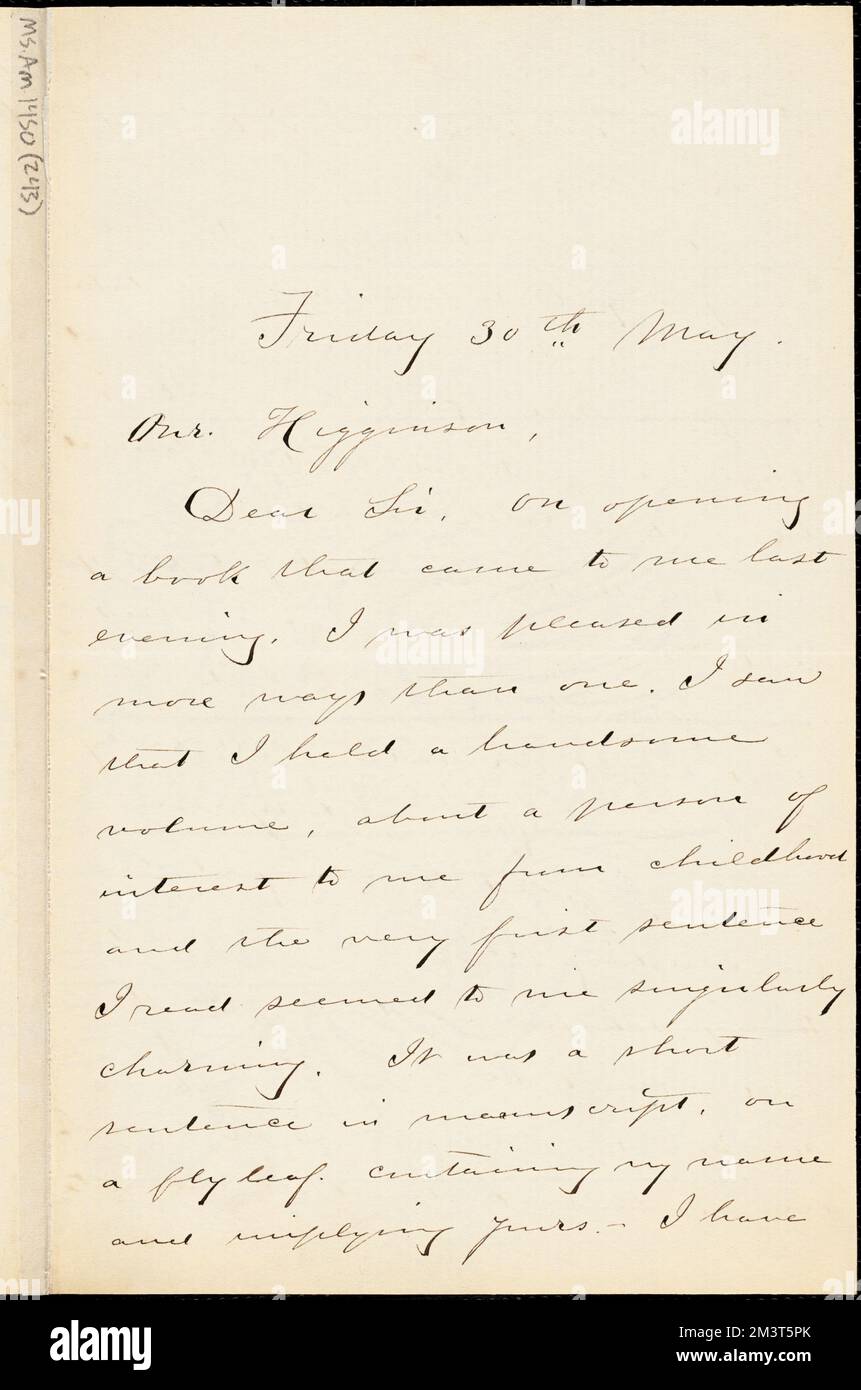 Ms.Am 1450(243)
Friday 30th May.
Mr. Higginson,
Dear Sir, On opening
a book that came to me last
evening, I was pleased in
more ways than one. I saw
that I held a handsome
volume, about a person of
interest to me from childhood
and the very first sentence
I read seemed to me singularly
charming. It was a short
sentence in manuscript, on
a fly leaf. containing my name
and implying yours. – I have
alamy
Image ID: 2M3T5PK
www.alamy.com